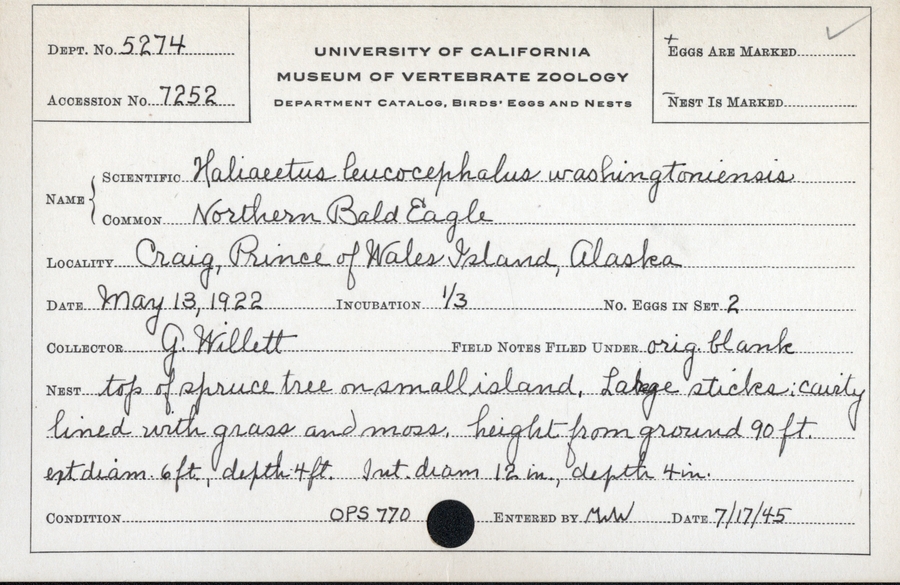 DEPT. No. 5274
UNIVERSITY OF CALIFORNIA
+EGGS ARE MARKED ✓
MUSEUM OF VERTEBRATE ZOOLOGY
ACCESSION No. 7252
DEPARTMENT CATALOG, BIRDS' EGGS AND NESTS
–NEST IS MARKED
NAME { SCIENTIFIC Haliaeetus leucocephalus washingtoniensis
COMMON Northern Bald Eagle
LOCALITY Craig, Prince of Wales Island, Alaska
DATE May 13, 1922 INCUBATION 1/3 No. EGGS IN SET 2
COLLECTOR G. Willett FIELD NOTES FILED UNDER orig. blank
NEST top of spruce tree on small island. Large sticks; cavity
lined with grass and moss. height from ground 90 ft.
ext diam. 6 ft., depth 4 ft. Int. diam 12 in., depth 4 in.
CONDITION OPS 770 ENTERED BY MWW DATE 7/17/45